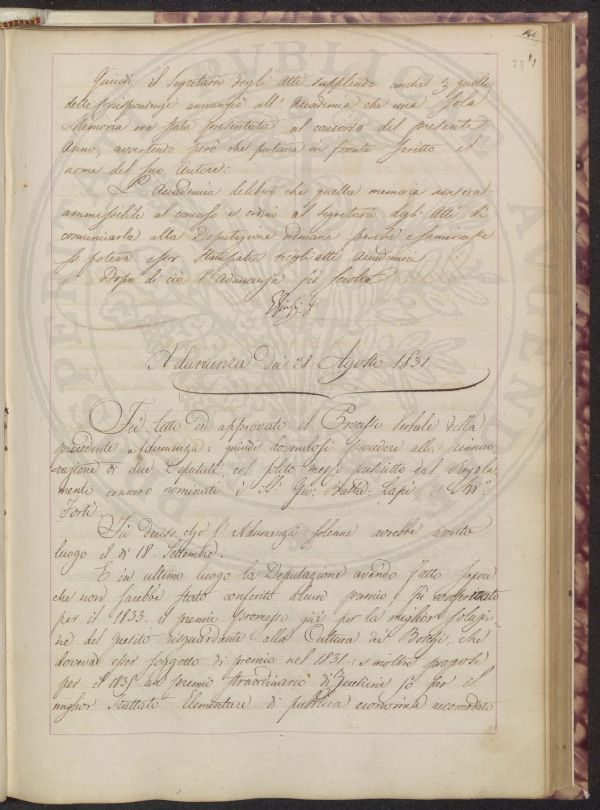 146
Quindi il Segretario degli Atti supplendo anche a quello
delle Corrispondenze annunziò all' Accademia che una sola
Memoria era stata presentata al concorso del presente
Anno, avvertendo però che portava in fronte scritto il
nome del suo Autore.
L' Accademia deliberò che quella memoria non era
ammissibile al concorso e ordinò al segretario degli Atti di
comunicarla alla Deputazione ordinaria perché esaminasse
se poteva esser stampata negli atti Accademici
Dopo di ciò l'Adunanza fu sciolta
Adunanza Dei 28 Agosto 1831
Fu letto ed approvato il Processo Verbale della
precedente Adunanza: quindi dovendosi procedere alla rinnuo-
vazione di due Deputati col solito mezzo prescritto dal Regola-
mento vennero nominati i Sri. Gio: Batta: Lapi e
Forti
Fu deciso che l'Adunanza solenne avrebbe avuto
luogo il dì 18. Settembre.
E in ultimo luogo la Deputazione avendo fatto sapere
che non sarebbe stato conferito alcun premio fu
per il 1833. il premio promesso già per la miglior soluzio-
ne del quesito risguardante alla Cultura dei Boschi, che
doveva esser soggetto di premio nel 1831: e inoltre propose
per il 1835 un premio straordinario di Zecchini 50 per il
miglior trattato Elementare di pubblica economia accomodato